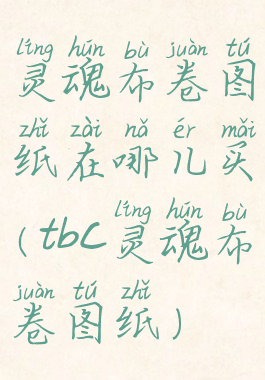 líng hún bù juàn tú
灵魂布卷图
zhǐ zài nǎ ér mǎi
纸在哪儿买
líng hún bù
(tbc灵魂布
juàn tú zhǐ
卷图纸)